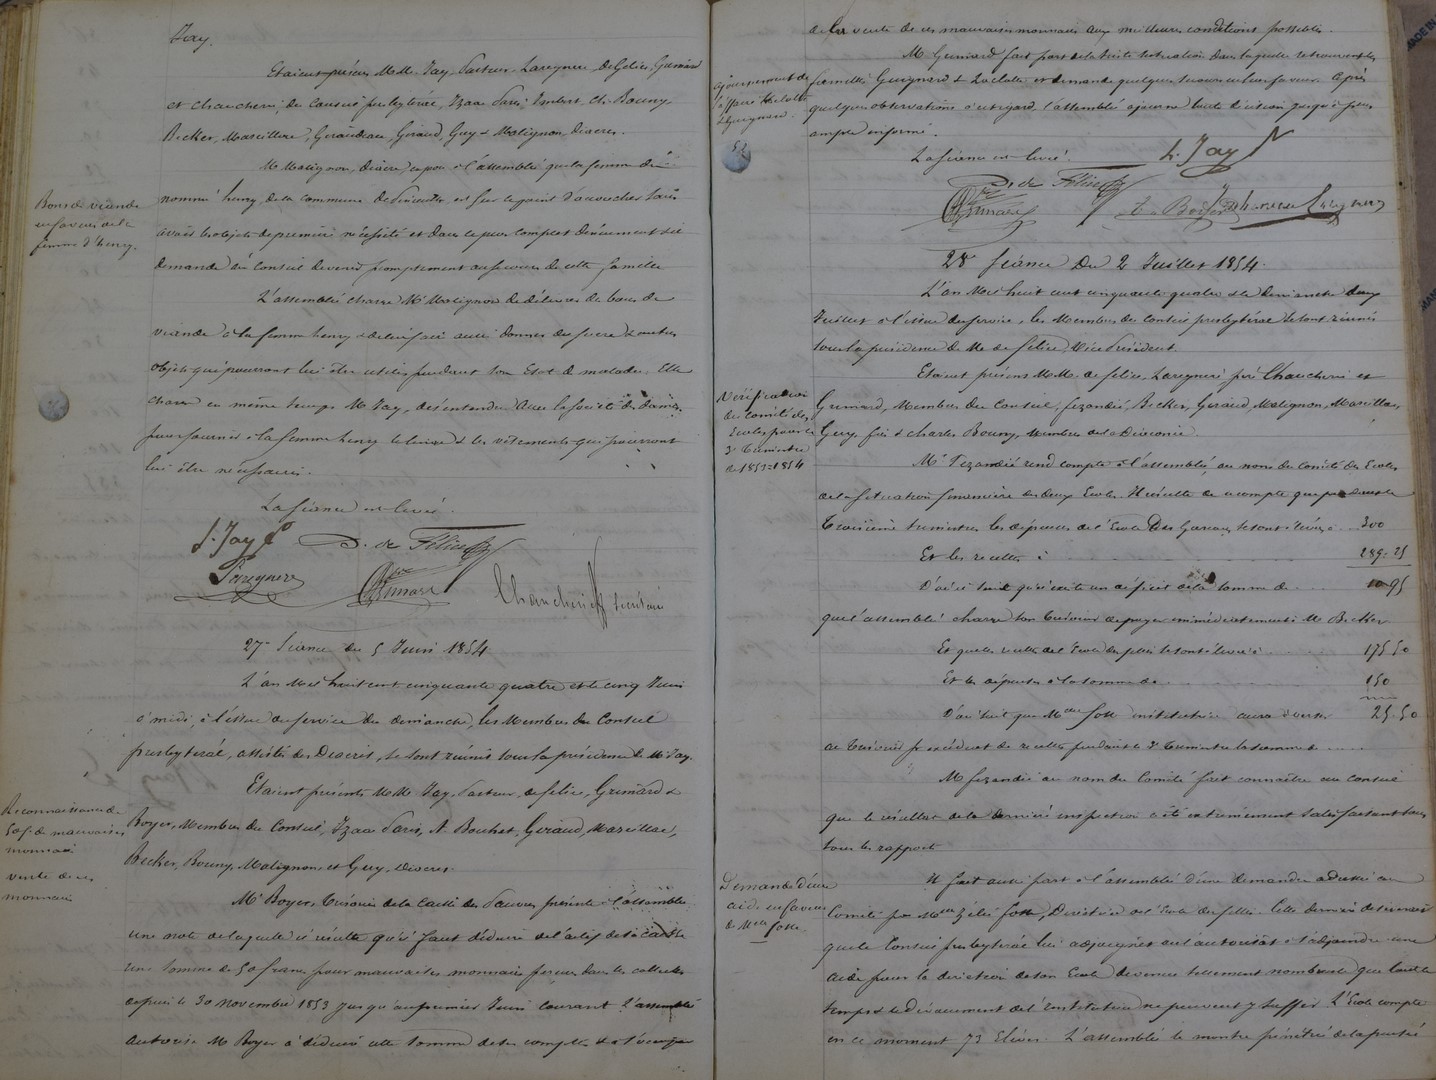 Jay.
Etaient présens M.M. Jay, Pasteur, Lareynere, De Félice, Grimard
et Chaucherie, du Conseil presbytéral, Izaac Paris, Imbert, Ch. Bouny
Becker, Marcillon, Giraudeau, Giraud, Guy & Matignon, diacres.
M. Matignon, diacre, expose à l'assemblée que la femme du
Bons de viande
en faveur de la
femme d'henry.
nommé henry, de la commune de est sur le point d'accoucher sans
avoir les objets de première nécessité et dans le plus complet dénuement. Il
demande au Conseil de venir promptement au secours de cette famille
L'assemblée charge Mr Matignon de délivrer des bons de
viande à la femme henry & de lui faire aussi donner du sucre & autres
objets qui pourront lui être utiles pendant son état de maladie. Elle
charge en même temps M. Jay, de s'entendre avec la société des dames,
pour fournir à la femme henry le linge & les vêtements qui pourront
lui être nécessaires.
La séance est levée.
J. Jay D. de Félice
Lareynere Grimard Chaucherie secrétaire
27e Séance du 5 Juin 1854
L'an Mil huit cent cinquante quatre et le cinq Juin
à midi, à l'issue du service du dimanche, les Membres du Conseil
presbytéral, assistés des Diacres, se sont réunis sous la présidence de M. Jay.
Etaient présents M.M. Jay, Pasteur, de félice, Grimard &
Reconnaissance de
50f. de mauvaises
monnaies
vente de ces
monnaies
Boyer, Membres du Conseil, Izaac Paris, A. Bouhet, Giraud, Marcillac,
Becker, Bouny, Matignon et Guy, diacres.
Mr Boyer, Trésorier de la Caisse des Pauvres présente à l'assemblée
une note de laquelle il résulte qu'il faut déduire de l'actif de sa caisse
une somme de 50 francs pour mauvaises monnaies perçues dans les collectes
depuis le 30 novembre 1853 jusqu'au premier Juin courant. L'assemblée
autorise M. Boyer à déduire cette somme de ses comptes & à s'occuper
de la vente de ces mauvaises monnaies aux meilleures conditions possibles.
M. Grimard fait part de la triste situation dans laquelle se trouvent les
ajournement de
l'affaire
Guignard.
familles Guignard & et demande quelques secours en leur faveur. Après
quelques observations à cet égard l'assemblée ajourne toute décision jusqu'à plus
ample informé.
La séance est levée. J. Jay
D. de Félice
Grimard Boyer Lareynere
28e séance Du 2 Juillet 1854.
L'an Mil huit cent cinquante quatre & le dimanche deux
Juillet à l'issue du service, les Membres du Conseil presbytéral se sont réunis
sous la présidence de M. de félice, Vice Président.
Etaient présens M.M. de félice, Lareyneré père Chaucherie et
Vérification
du Comité des
Ecoles pour le
3e Trimestre
de 1853=1854
Grimard, Membres du Conseil, fezandié, Becker, Giraud, Matignon, Marcillac,
Guy, fils & charles Bouny, Membres de la Diaconie.
Mr Fezandié rend compte à l'assemblée, au nom du Comité des Ecoles
de la situation financière des deux Ecoles. Il résulte de ce compte que pendant le
Troisième trimestre les dépenses de l'Ecole Des Garçons se sont élevées à 300
Et les recettes à 289=25
D'où il suit qu'il existe un déficit de la somme de 10 95
que l'assemblée charge son Trésorier de payer immédiatement à M. Becker
Et que les recettes de l'Ecole des filles se sont élevées à 175 50
Et les dépenses à la somme de 150
D'où il suit que Melle fosse institutrice aura à verser 25.50
au Trésorier pr excédent de recettes pendant le 3e Trimestre la somme de
M. fezandié au nom du Comité fait connaître au conseil
que le résultat de la dernière inspection a été extrêmement satisfaisant sous
tous les rapports.
Il fait aussi part à l'assemblée d'une demande adressée au
Demande d'une
aide en faveur
de Melle fosse
Comité par Melle Zélie fosse, Directrice de l'Ecole des filles. Cette dernière désirerait
que le Conseil presbytéral lui adjoignît ou l'autorisât à s'adjoindre une
aide pour la direction de son Ecole devenue tellement nombreuse que tout le
temps & le dévouement de l'institutrice ne peuvent y suffire. L'Ecole compte
en ce moment 73 Elèves. L'assemblée se montre pénétrée de la pensée